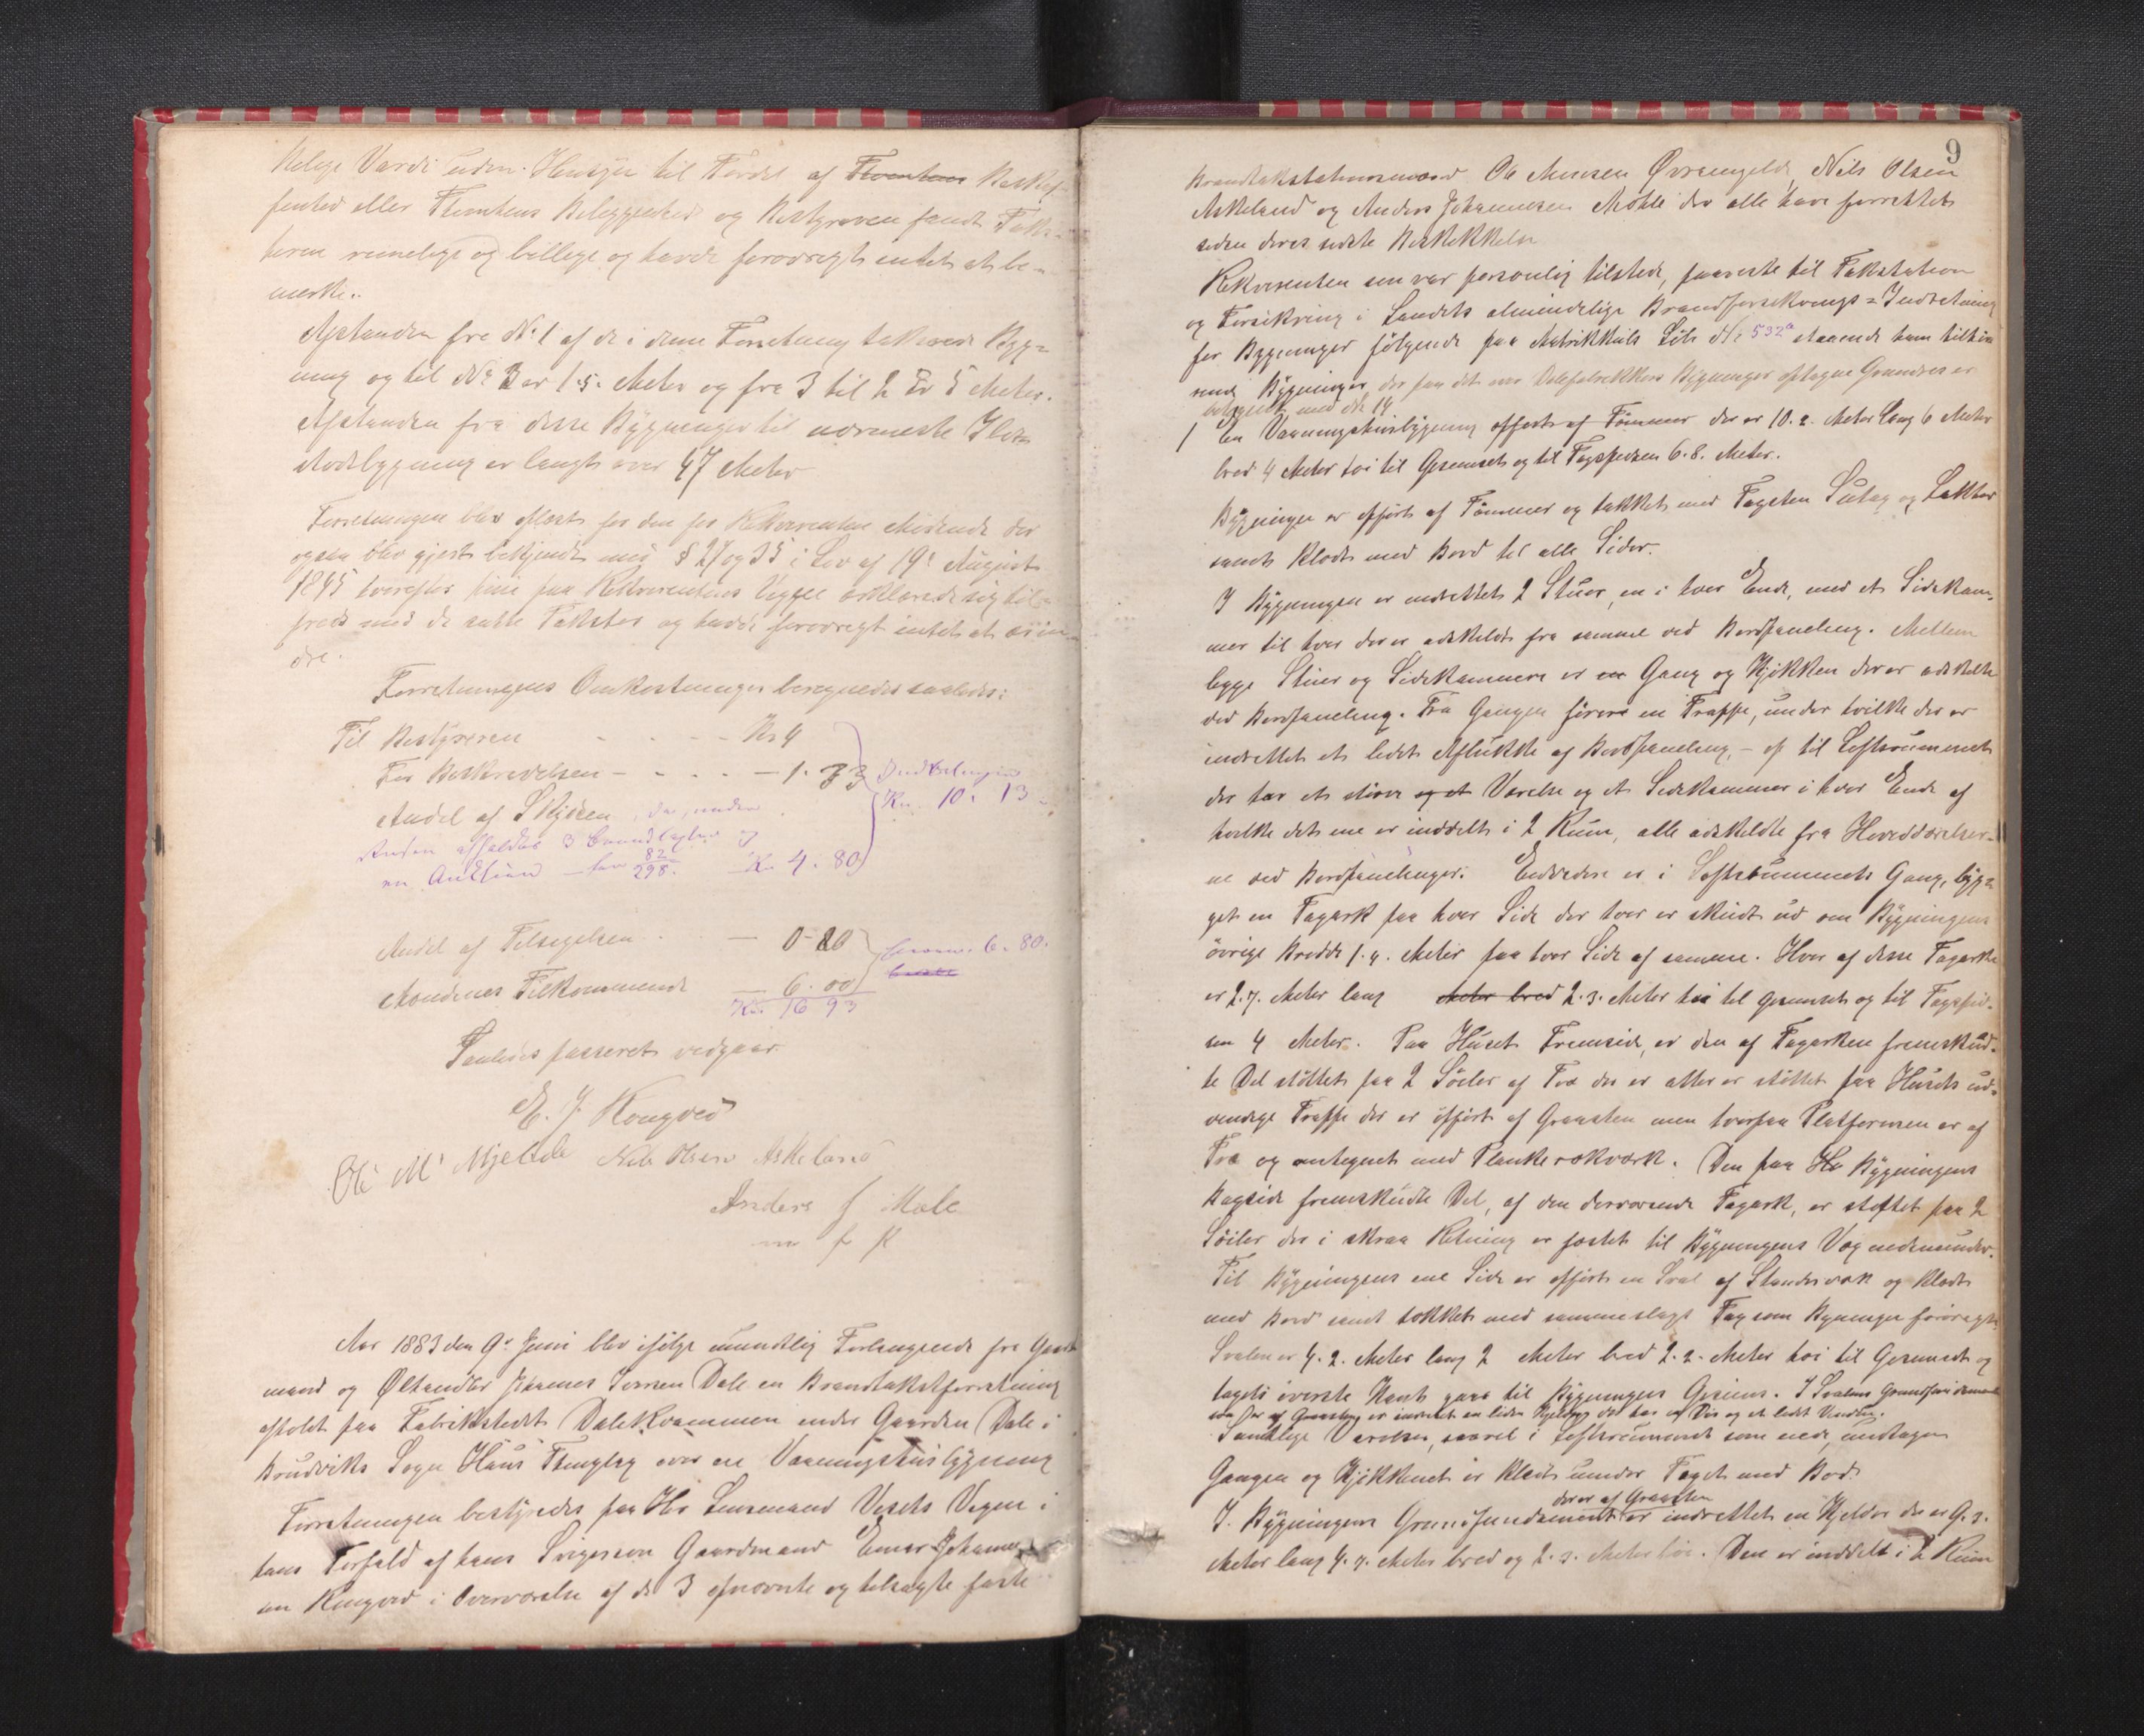 Værdi uden Hensyn til af ~~Tomtens~~ Beskaf-
fenhed eller Tomtens Beliggenhed og Bestyreren fandt Taks-
terne rimelige og billige og havde forøvrigt intet at be-
mærke.
Afstanden fra No 1 af de i denne Forretning takserede Byg-
ning og til No 3 er 1.5. Meter og fra 3 til 2 Er 5 Meter.
Afstanden fra disse Bygninger til nærmeste Ild-
stedsbygning er langt over 47 Meter
Forretningen blev oplæst for den for Rekvirenten Mødende der
ogsaa blev gjort bekjendt med § 27 og 35 i Lov af 19de August
1845 hvorefter paa Rekvirentens Vegne erklærede sig til-
freds med de satte Takster og havde forøvrigt intet at erin-
dre.
Forretningens Omkostninger beregnedes saaledes:
Til Bestyreren - - - - Kr 4
For Beskrivelsen - - - - 1. 33
Andel af Skydsen, da, under
Reisen afholdtes 3 Brandtaxter og
en Auktion - 82 298. Kr. 4. 80
Indbetaling
Kr. 10. 13
Andel af Tilsigelsen - 0-80
Mændenes Tilkommende - 6.00
Kr. 16 93
6. 80.
Saaledes passeret vedgaar
E. J. Kongved
Ole M. Mjelde Nils Olsen Askeland
Anders J Male
m f p
Aar 1883 den 9de Juni blev ifølge mundtlig Forlangende fra Gaard-
mand og Ølhandler Johannes Iversen Dale en Brandtakstforretning
afholdt paa Fabrikstedet Dalekvammen under Gaarden Dale i
Brudviks Sogn Haus Thinglag over en Vaaningshusbygning
Forretningen bestyredes paa Hr Lensmand Vesets Vegne i
hans Forfald af hans Svigersøn Gaardmand Einar Johannes-
en Kongved i Overværelse af de 3 opnævnte og tilsagte faste
9
Brandtakstationsmænd Ole Monsen Øvremjelde, Nils Olsen
Askeland og Anders Johannesen Möhle der alle have forrettet
siden deres sidste Beskikkelse
Rekvirenten som var personlig tilstede, paaviste til Takstation
og Forsikring i Landets almindelige Brandforsikrings-Indretning
for Bygninger følgende paa Matrikkuls Løbe No 532a staaende ham tilhø-
rende Bygninger, der paa det over Dalefabrikkens Bygninger optagne Grundrids er
betegnet med No 14
1 En Vaaningshusbygning opført af Tømmer der er 10.2. Meter lang 6 Meter
bred 4 Meter høi til Gesimset og til Tagspidsen 6.8. Meter.
Bygningen er opført af Tømmer og tækket med Tagsten Sutag og Lekter
samt klædt med Bord til alle Sider.
I Bygningen er indrettet 2 Stuer, en i hver Ende, med et Sidekam-
mer til hver der er adskildt fra samme ved Bordpaneling. Mellem
begge Stuer og Sidekammere er en Gang og Kjøkken der er adskilte
ved Bordpaneling. Fra Gangen fører en Trappe, under hvilke der er
indrettet et lidet Aflukke af Bordpaneling, - op til Loftsrummet
der har et større ~~og et~~ Værelse og et Sidekammer i hver Ende af
hvilke det ene er inddelt i 2 Rum, alle adskildte fra Hovedværelser-
ne ved Bordpanelinger. Endvidere er i Loftsrummets Gang, byg-
get en Tagark paa hver Side der hver er skudt ud om Bygningens
øvrige Bredde 1.4. Meter paa hver Side af samme. Hver af disse Tagarke
er 2.7. Meter lang ~~Meter bred~~ 2.3. Meter høi til Gesimset og til Tagspid-
sen 4 Meter. Paa Huset Fremside, er den af Tagarken fremskud-
te Del støttet paa 2 Søiler af Træ der er atter er støttet paa Husets ud-
vendige Trappe der er opført af Graasten men hvorpaa Platformen er af
Træ og omtegnet med Plankerækværk. Den paa ~~Hu~~ Bygningens
Bagside fremskudte Del, af den derværende Tagark, er støttet paa 2
Søiler der i skraa Retning er fæstet til Bygningens Væg nedenunder.
Til Bygningens ene Side er opført en Sval af Standerværk og klædt
med Bord samt tækket med sammeslags Tag som Bygningen forøvrigt
Svalen er 4.2. Meter lang 2 Meter bred 2.2. Meter høi til Gesimset og
tagets øverste Kant gaar til Bygningens Gesims. I Svalens Grundfundament
som er af Graasten er indrettet en liden Kjelder der har en Dør og et lidet Vindue.
Samtlige Værelser, saavel i Loftsrummet som nede, undtagen
Gangen og Kjøkkenet er klædt under Taget med Bord.
I Bygningens Grundfundament der er af Graasten er indrettet en Kjelder der er 9.3.
Meter lang 4.7. Meter bred og 2.3. Meter høi. Den er inddelt i 2 Rum